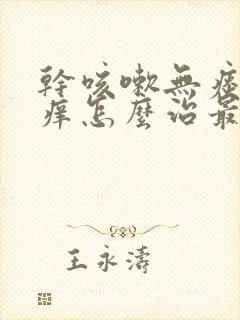 幹咳嗽無痰
痒怎麼治最
王永濤